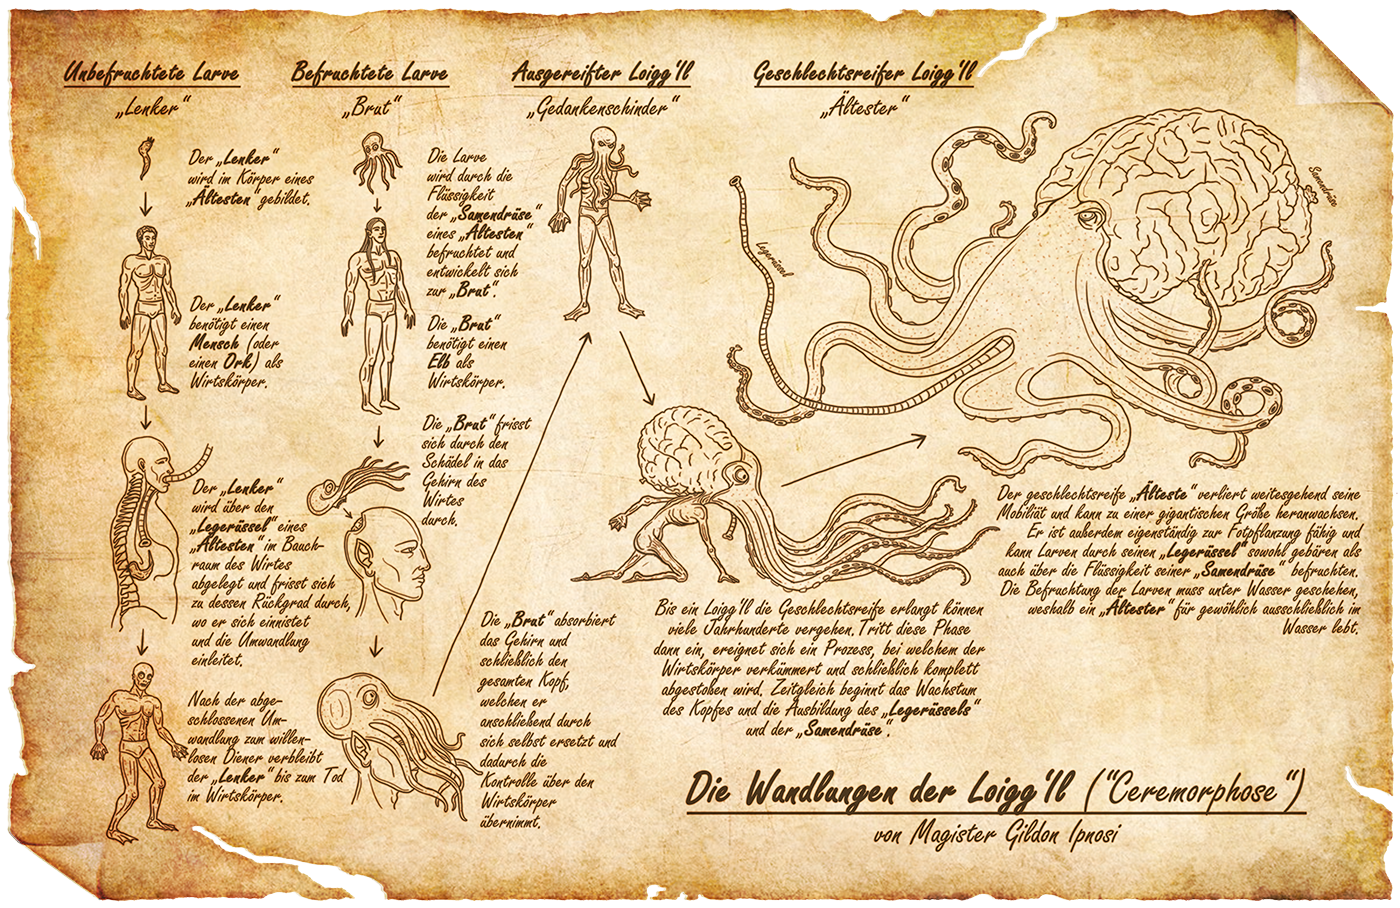 Unbefruchtete Larve
„Lenker“
Der „Lenker“
wird im Körper eines
„Ältesten“ gebildet.
Der „Lenker“
benötigt einen
Mensch (oder
einen Ork) als
Wirtskörper.
Der „Lenker“
wird über den
„Legerüssel“ eines
„Ältesten“ im Bauch-
raum des Wirtes
abgelegt und frisst sich
zu dessen Rückgrad durch,
wo er sich einnistet
und die Umwandlung
einleitet.
Nach der abge-
schlossenen Um-
wandlung zum willen-
losen Diener verbleibt
der „Lenker“ bis zum Tod
im Wirtskörper.
Befruchtete Larve
„Brut“
Die Larve
wird durch die
Flüssigkeit
der „Samendrüse“
eines „Ältesten“
befruchtet und
entwickelt sich
zur „Brut“.
Die „Brut“
benötigt einen
Elb als
Wirtskörper.
Die „Brut“ frisst
sich durch den
Schädel in das
Gehirn des
Wirtes
durch.
Die „Brut“ absorbiert
das Gehirn und
schließlich den
gesamten Kopf,
welchen er
anschließend durch
sich selbst ersetzt und
dadurch die
Kontrolle über den
Wirtskörper
übernimmt.
Ausgereifter Loigg'Il
„Gedankenschinder“
Bis ein Loigg'Il die Geschlechtsreife erlangt können
viele Jahrhunderte vergehen. Tritt diese Phase
dann ein, ereignet sich ein Prozess, bei welchem der
Wirtskörper verkümmert und schließlich komplett
abgestoßen wird. Zeitgleich beginnt das Wachstum
des Kopfes und die Ausbildung des „Legerüssels“
und der „Samendrüse“.
Geschlechtsreifer Loigg'Il
„Ältester“
Legerüssel
Samendrüse
Der geschlechtsreife „Älteste“ verliert weitesgehend seine
Mobiliät und kann zu einer gigantischen Größe heranwachsen.
Er ist außerdem eigenständig zur Fotpflanzung fähig und
kann Larven durch seinen „Legerüssel“ sowohl gebären als
auch über die Flüssigkeit seiner „Samendrüse“ befruchten.
Die Befruchtung der Larven muss unter Wasser geschehen,
weshalb ein „Ältester“ für gewöhlich ausschließlich im
Wasser lebt.
Die Wandlungen der Loigg'Il (“Ceremorphose“)
von Magister Gildon Ipnosi